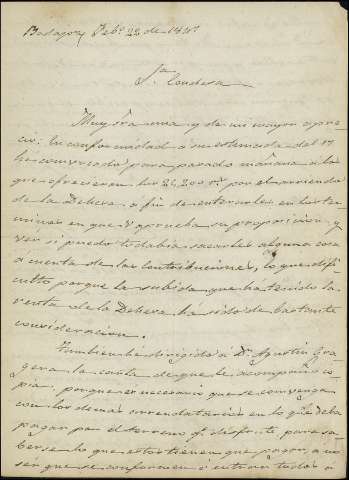 Badajoz Feb.º 22 de
S.ra Condesa
Muy Sra mia y de mi mayor apre-
cio: En conformidad a su estimada del 17
he convocado para pasado mañana á los
que ofrecieron los 26,200 r.s por el arriendo
de la Dehesa á fin de enterarles en los ter-
minos en que V. aprueba su proposicion y
ver si puedo todabia sacarles alguna cosa
á cuenta de las contribuciones, lo que difi-
culto porque la subida que ha tenido la
renta de la Dehesa ha sido de bastante
consideracion.
Tambien he dirigido á D.n Agustin Gra-
gera la carta de que le acompaño co-
pia, porque es necesario que se convenga
con los demas arrendatarios en lo q.e deba
pagar por el terreno q.e disfrute para sa-
berse lo que estos tienen que pagar, a no
ser que se conformen si entran todos a